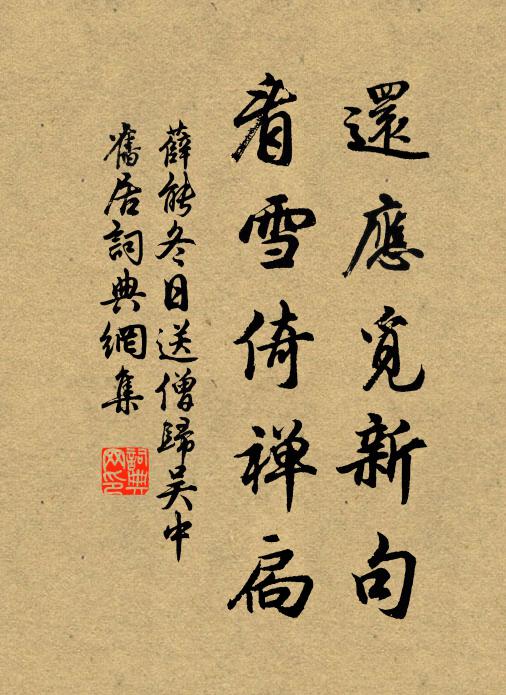 還應覓新句
看雪倚禅扃
薛能冬日送僧歸吳中
舊居詞典網集
詞典网印